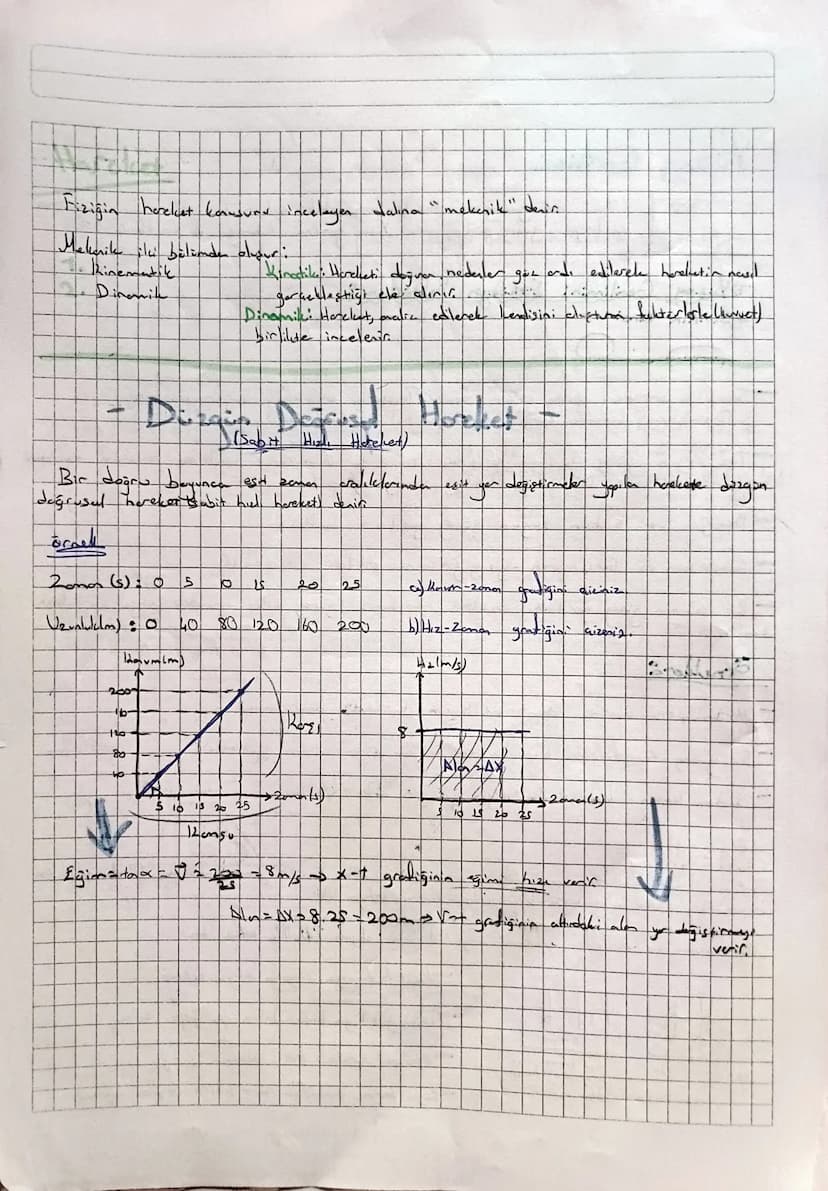 Hareket
Fiziğin hareket konusunu inceleyen dalına "mekanik" denir.
Mekanik iki bölümden oluşur:
1. Kinematik
2. Dinamik
Kinetik: Hareketi doğuran nedenler göz ardı edilerek hareketin nasıl
gerçekleştiği ele alınır.
Dinamik: Hareket, analiz edilerek kendisini oluşturan faktörlerle (kuvvet)
birlikte incelenir.
- Düzgün Doğrusal Hareket -
(Sabit Hızlı Hareket)
Bir doğru boyunca eşit zaman aralıklarında eşit yer değiştirmeler yapılan harekete düzgün
doğrusal hareket (sabit hızlı hareket) denir.
örnek
Zaman (s): 0 5 10 15 20 25 a) Konum-zaman grafiğini çiziniz.
Uzunluk(m): 0 40 80 120 160 200 b) Hız-Zaman grafiğini çizeniz.
Konum(m) Hız(m/s)
200
16
120
80
40
5 10 15 20 25 Zaman(s)
Karşı
Komşu
8
Alan = ΔX
5 10 15 20 25 Zaman(s)
Eğim = tanα = V = 200/25 = 8 m/s → x-t grafiğinin eğimi hızı verir.
Alan = ΔX = 8.25 = 200m → V-t grafiğinin altındaki alan yer değiştirmeyi
verir.